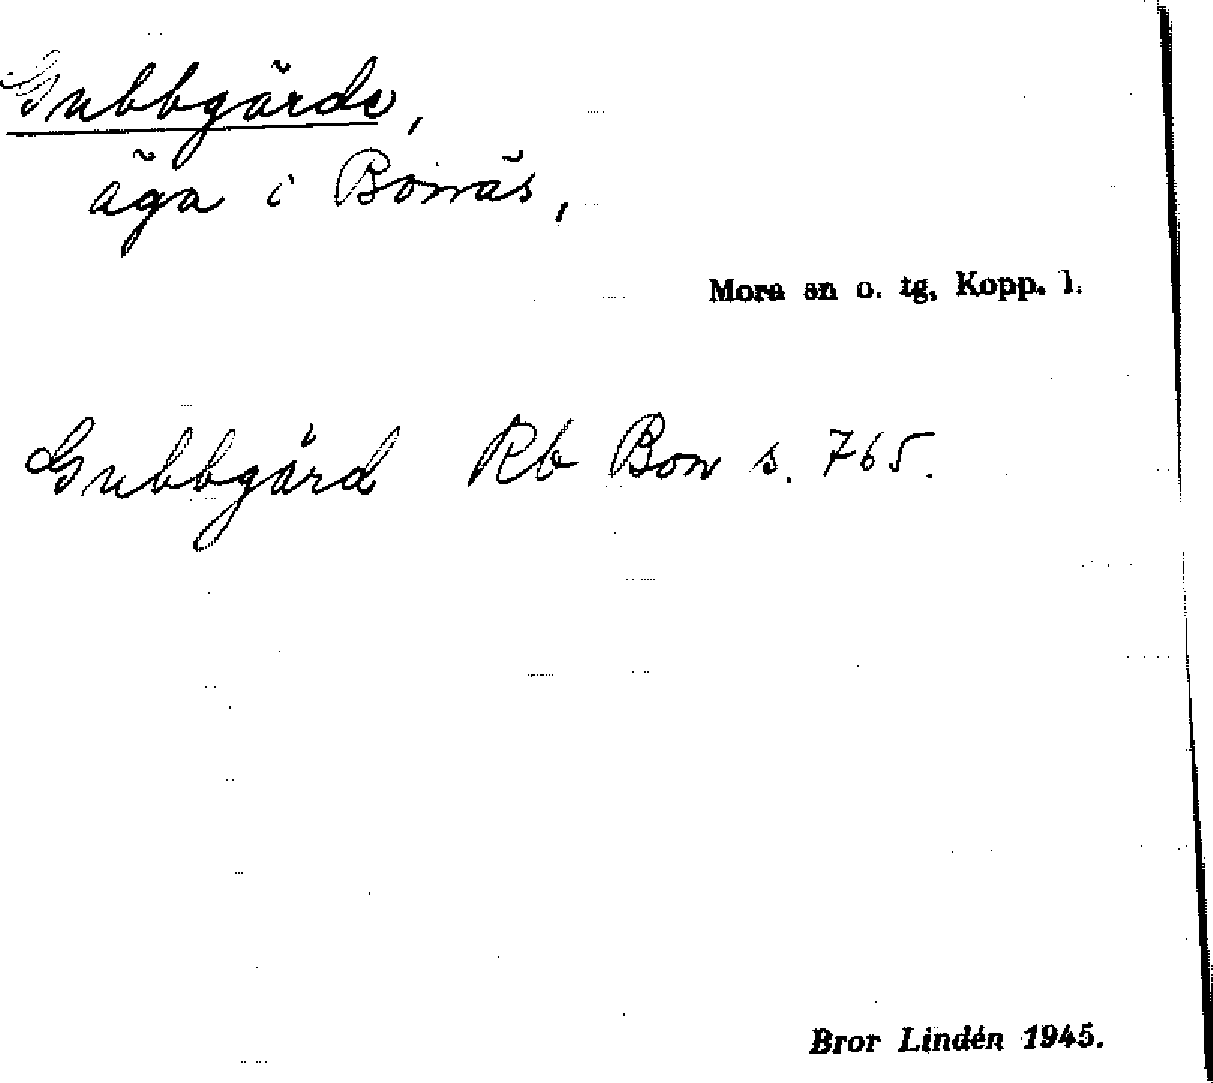 Gubbgärde,
äga i Bonäs,
Mora sn o. tg, Kopp. l.
Gubbgärd Rb Bon s. 765.
Bror Lindén 1945.